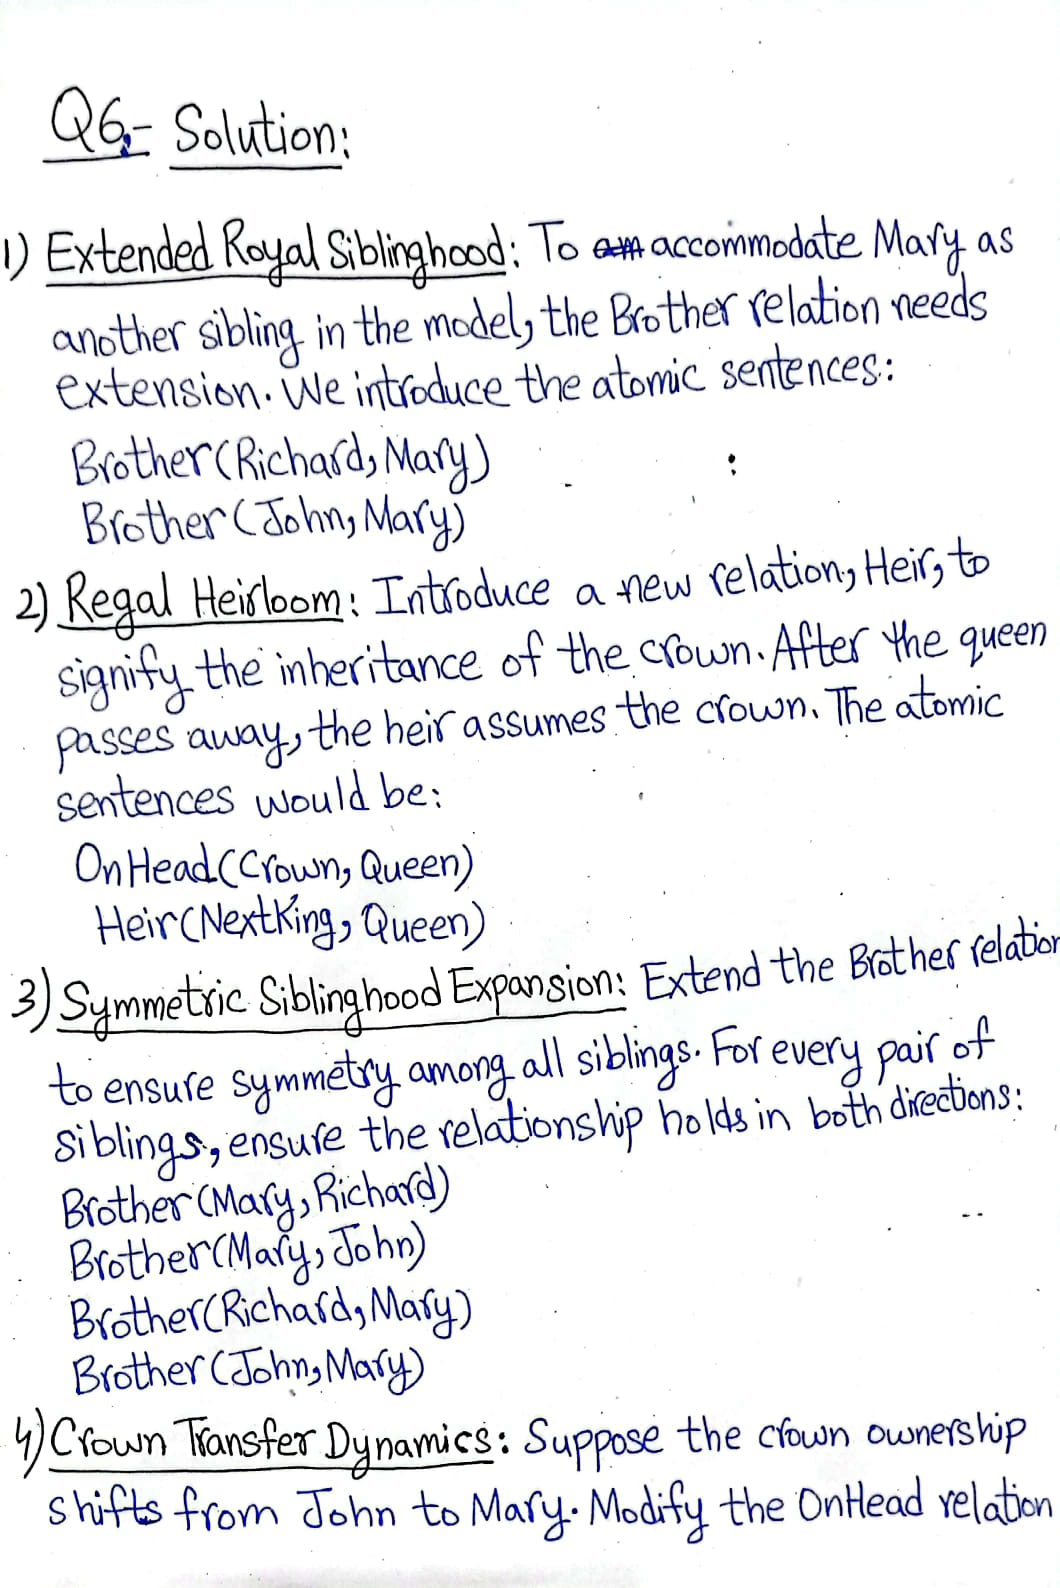 Q6:- Solution:
1) Extended Royal Siblinghood: To accommodate Mary as
another sibling in the model, the Brother relation needs
extension. We introduce the atomic sentences:
Brother(Richard, Mary)
Brother(John, Mary)
2) Regal Heirloom: Introduce a new relation, Heir, to
signify the inheritance of the crown. After the queen
passes away, the heir assumes the crown. The atomic
sentences would be:
OnHead(Crown, Queen)
Heir(NextKing, Queen)
3) Symmetric Siblinghood Expansion: Extend the Brother relation
to ensure symmetry among all siblings. For every pair of
siblings, ensure the relationship holds in both directions:
Brother(Mary, Richard)
Brother(Mary, John)
Brother(Richard, Mary)
Brother(John, Mary)
4) Crown Transfer Dynamics: Suppose the crown ownership
shifts from John to Mary. Modify the OnHead relation